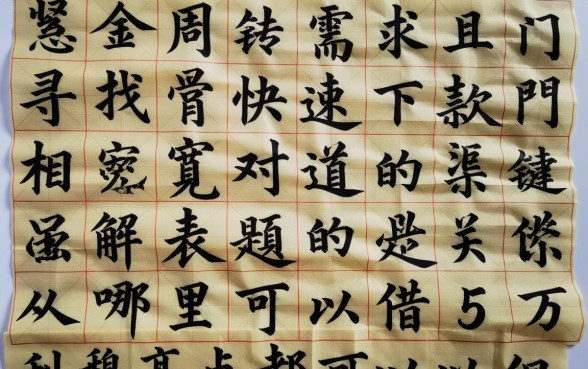 金周需求且门
寻找骨快速下款門
相寬对道的渠键
解表題的是关
从哪里可以借5万
都可以